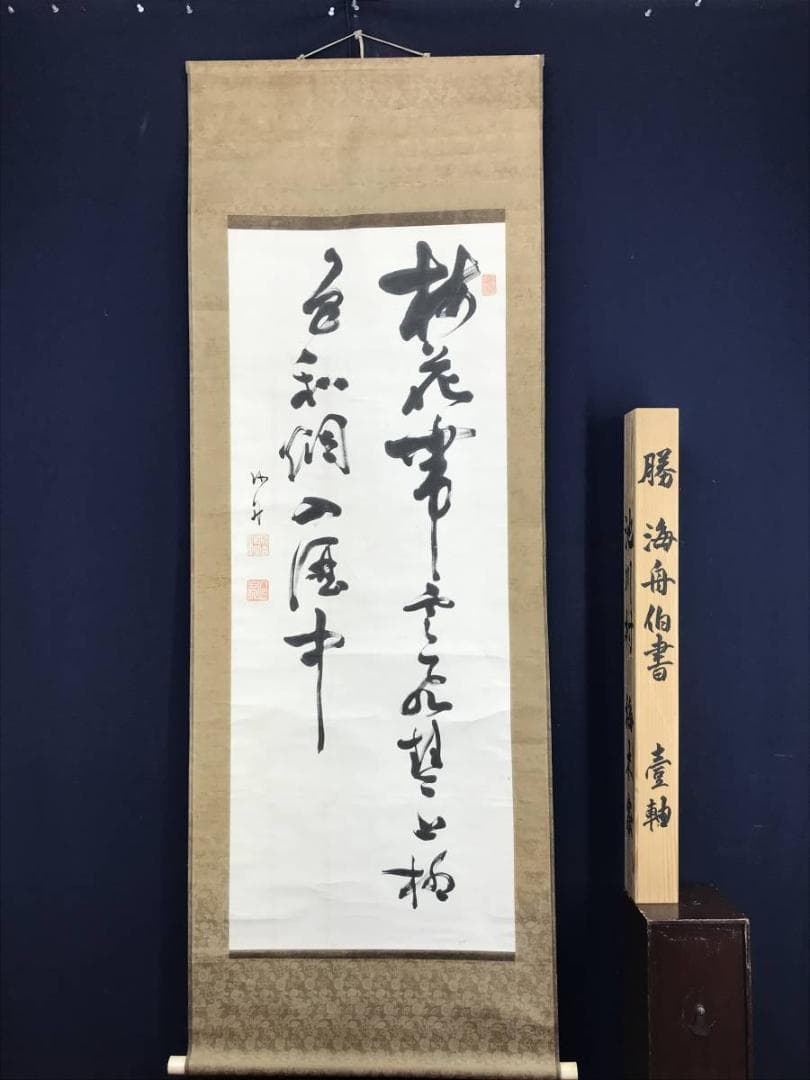 梅花帯雪飛琴上柳
色和烟入酒中
海舟
勝海舟伯書 壹軸